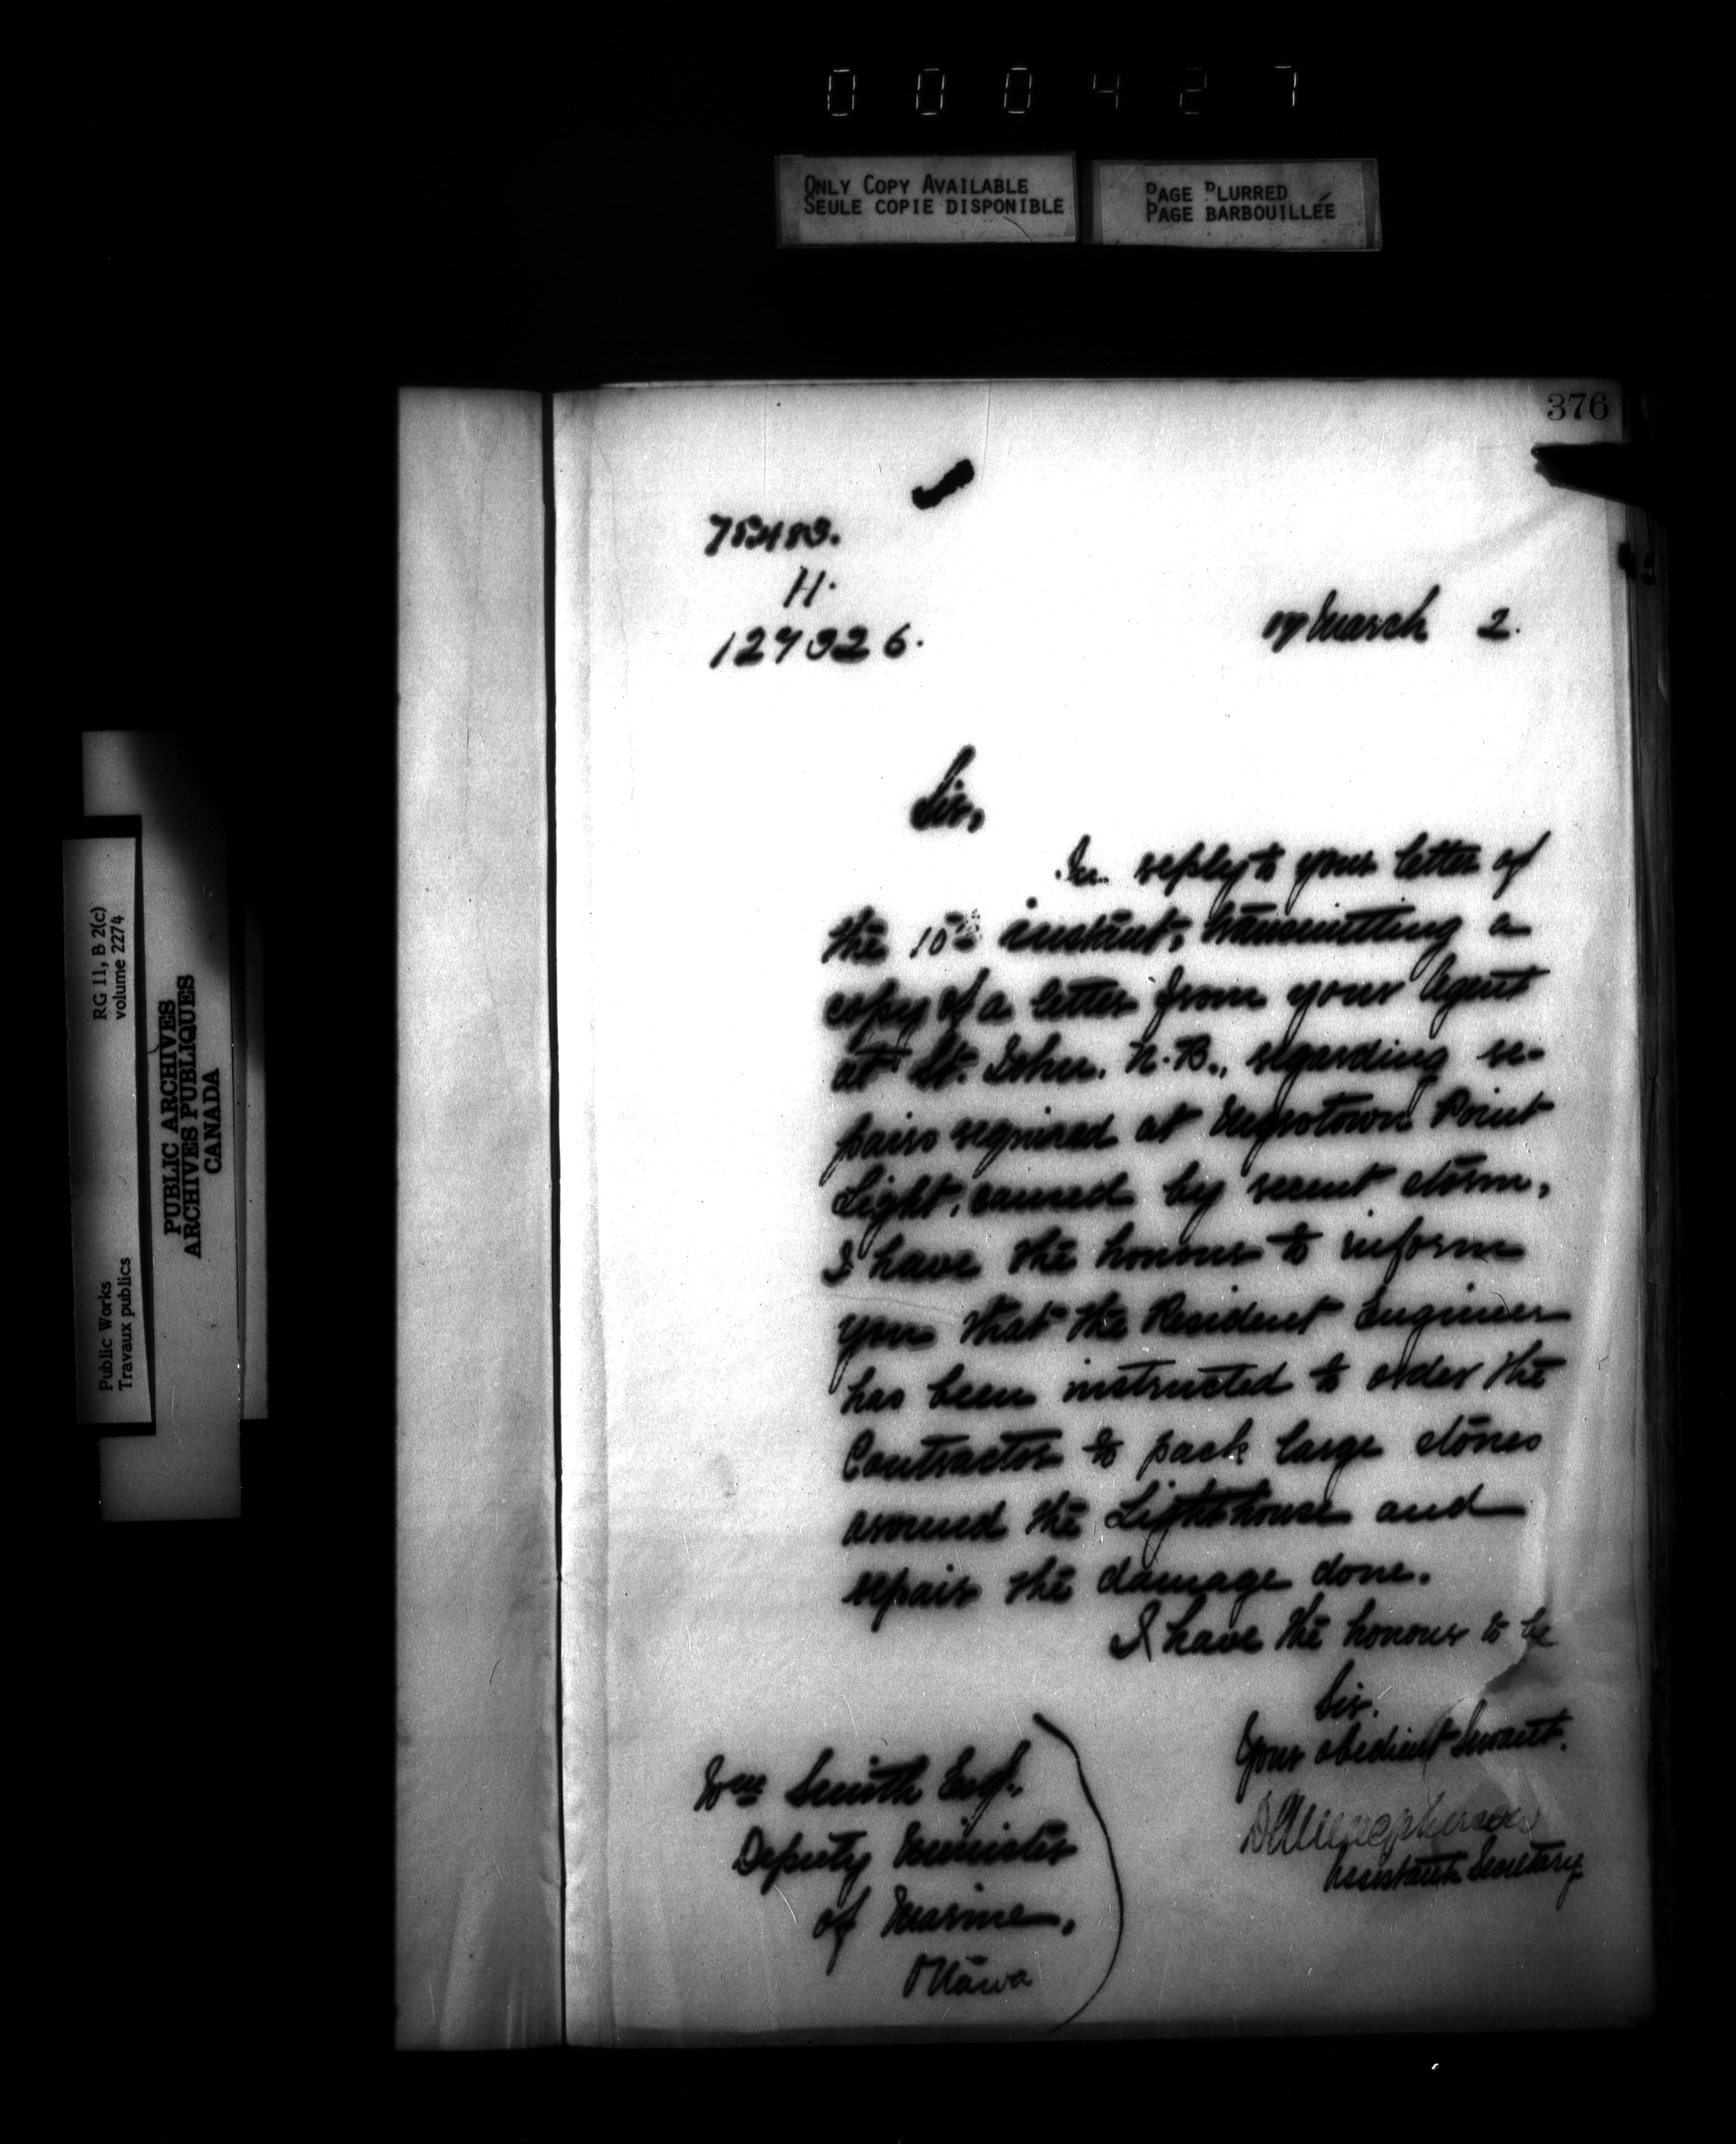 000427
ONLY COPY AVAILABLE
SEULE COPIE DISPONIBLE
PAGE BLURRED
PAGE BARBOUILLÉE
376
H.
127326.
17 March 2.
Sir,
In reply to your letter of
the 10th instant, transmitting a
copy of a letter from your Agent
at St. John. N.B., regarding re-
pairs required at Negrotown Point
Light, caused by recent storm,
I have the honour to inform
you that the Resident Engineer
has been instructed to order the
Contractor to pack large stones
around the Lighthouse and
repair the damage done.
I have the honour to be
Sir.
Your obedient Servant.
Assistant Secretary
Wm Smith Esq.,
Deputy Minister
of Marine,
Ottawa
RG 11, B 2(c)
volume 2274
Public Works
Travaux publics
PUBLIC ARCHIVES
ARCHIVES PUBLIQUES
CANADA